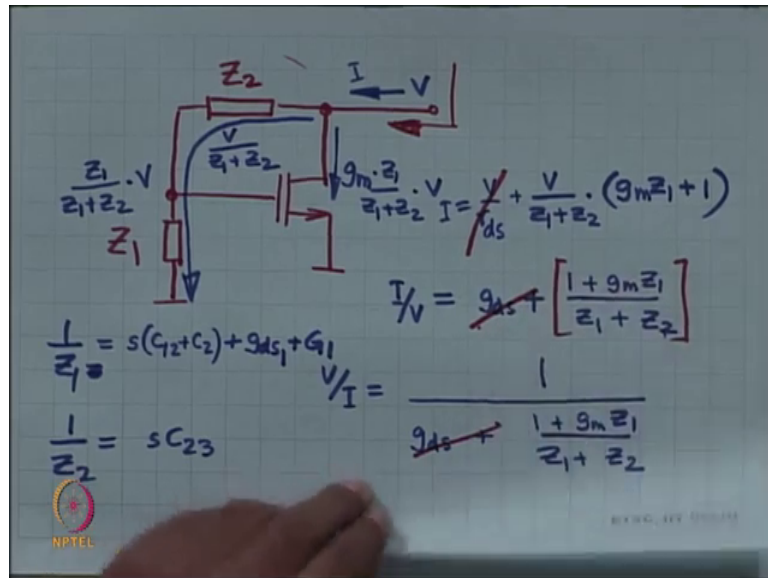 Z₂
I V
V/(z₁+z₂)
z₁/(z₁+z₂) · V
gₘ·z₁/(z₁+z₂) · V
Z₁
I = V/rds + V/(z₁+z₂) · (gₘz₁+1)
I/V = gds + [(1+gₘz₁)/(z₁+z₂)]
1/Z₁ = s(C₁₂+C₂)+gds₁+G₁
V/I = 1/(gds + (1+gₘz₁)/(z₁+z₂))
1/Z₂ = sC₂₃
NPTEL